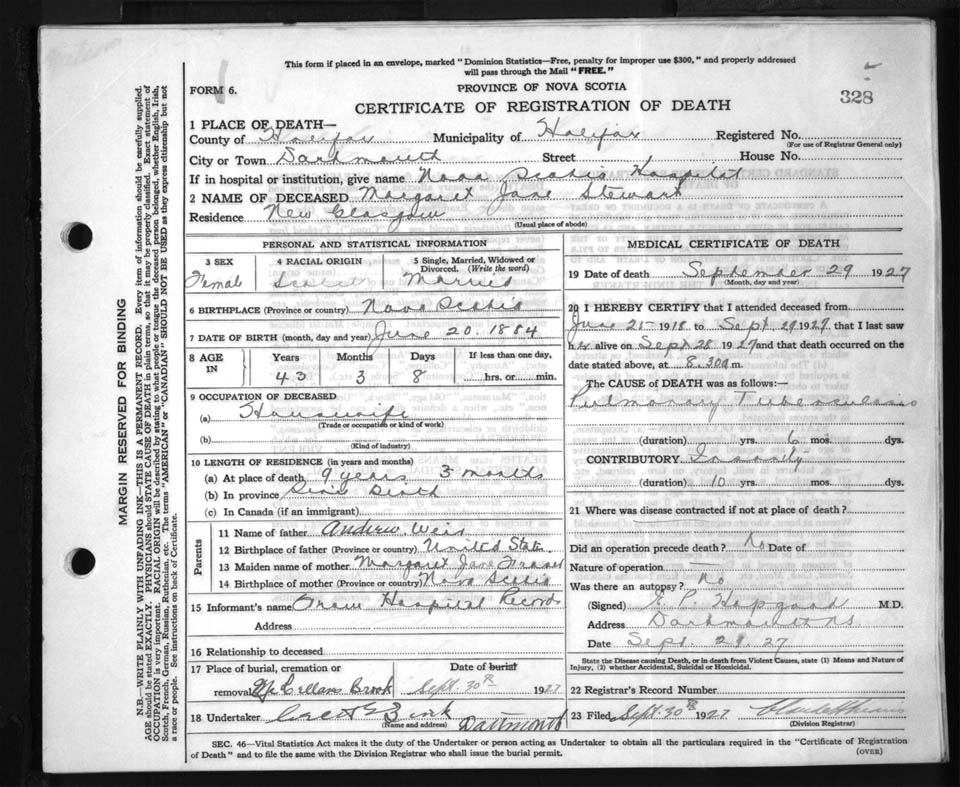 This form if placed in an envelope, marked "Dominion Statistics—Free, penalty for improper use $300," and properly addressed
will pass through the Mail "FREE."
FORM 6.
PROVINCE OF NOVA SCOTIA
328
CERTIFICATE OF REGISTRATION OF DEATH
1 PLACE OF DEATH—
County of Halifax Municipality of Halifax Registered No.
(For use of Registrar General only)
City or Town Dartmouth Street House No.
If in hospital or institution, give name Nova Scotia Hospital
2 NAME OF DECEASED Margaret Jane Stewart
Residence New Glasgow
(Usual place of abode)
PERSONAL AND STATISTICAL INFORMATION
3 SEX
Female
4 RACIAL ORIGIN
Scotch
5 Single, Married, Widowed or Divorced. (Write the word)
Married
6 BIRTHPLACE (Province or country) Nova Scotia
7 DATE OF BIRTH (month, day and year) June 20. 1884
8 AGE IN
Years Months Days If less than one day,
43 3 8 hrs. or min.
9 OCCUPATION OF DECEASED
(a) Housewife
(Trade or occupation or kind of work)
(b)
(Kind of industry)
10 LENGTH OF RESIDENCE (in years and months)
(a) At place of death 9 years 3 months
(b) In province
(c) In Canada (if an immigrant)
Parents
11 Name of father Andrew Weir
12 Birthplace of father (Province or country) United States
13 Maiden name of mother Margaret Jane Fraser
14 Birthplace of mother (Province or country) Nova Scotia
15 Informant's name From Hospital Records
Address
16 Relationship to deceased
17 Place of burial, cremation or Date of burial
removal McLellans Brook Sept. 30th 1927
18 Undertaker Dartmouth
(Name and address)
MEDICAL CERTIFICATE OF DEATH
19 Date of death September 29 1927
(Month, day and year)
20 I HEREBY CERTIFY that I attended deceased from
June 25 1918 to Sept 29 1927, that I last saw
her alive on Sept 28 1927 and that death occurred on
date stated above, at 8.30a m.
The CAUSE OF DEATH was as follows:
Pulmonary Tuberculosis
(duration) yrs. 6 mos. dys.
CONTRIBUTORY Insanity
(duration) 10 yrs. mos. dys.
21 Where was disease contracted if not at place of death?
Did an operation precede death? No Date of
Nature of operation —
Was there an autopsy? No
(Signed) E. P. Hopgood M.D.
Address Dartmouth NS
Date Sept. 29. 27
State the Disease causing Death, or in death from Violent Causes, state (1) Means and Nature of
Injury, (2) whether Accidental, Suicidal or Homicidal.
22 Registrar's Record Number
23 Filed Sept 30th 1927
(Division Registrar)
SEC. 46—Vital Statistics Act makes it the duty of the Undertaker or person acting as Undertaker to obtain all the particulars required in the "Certificate of Registration
of Death" and to file the same with the Division Registrar who shall issue the burial permit. (OVER)
MARGIN RESERVED FOR BINDING
N.B.—WRITE PLAINLY WITH UNFADING INK—THIS IS A PERMANENT RECORD. Every item of information should be carefully supplied.
AGE should be stated EXACTLY. PHYSICIANS should STATE CAUSE OF DEATH in plain terms, so that it may be properly classified. Exact statement of
OCCUPATION is very important. RACIAL ORIGIN will be described by stating to what people or tongue the deceased person belonged, whether English, Irish,
Scotch, French, German, Russian, Ruthenian, etc. The terms "AMERICAN" or "CANADIAN" SHOULD NOT BE USED as they express citizenship but not
a race or people. See instructions on back of Certificate.